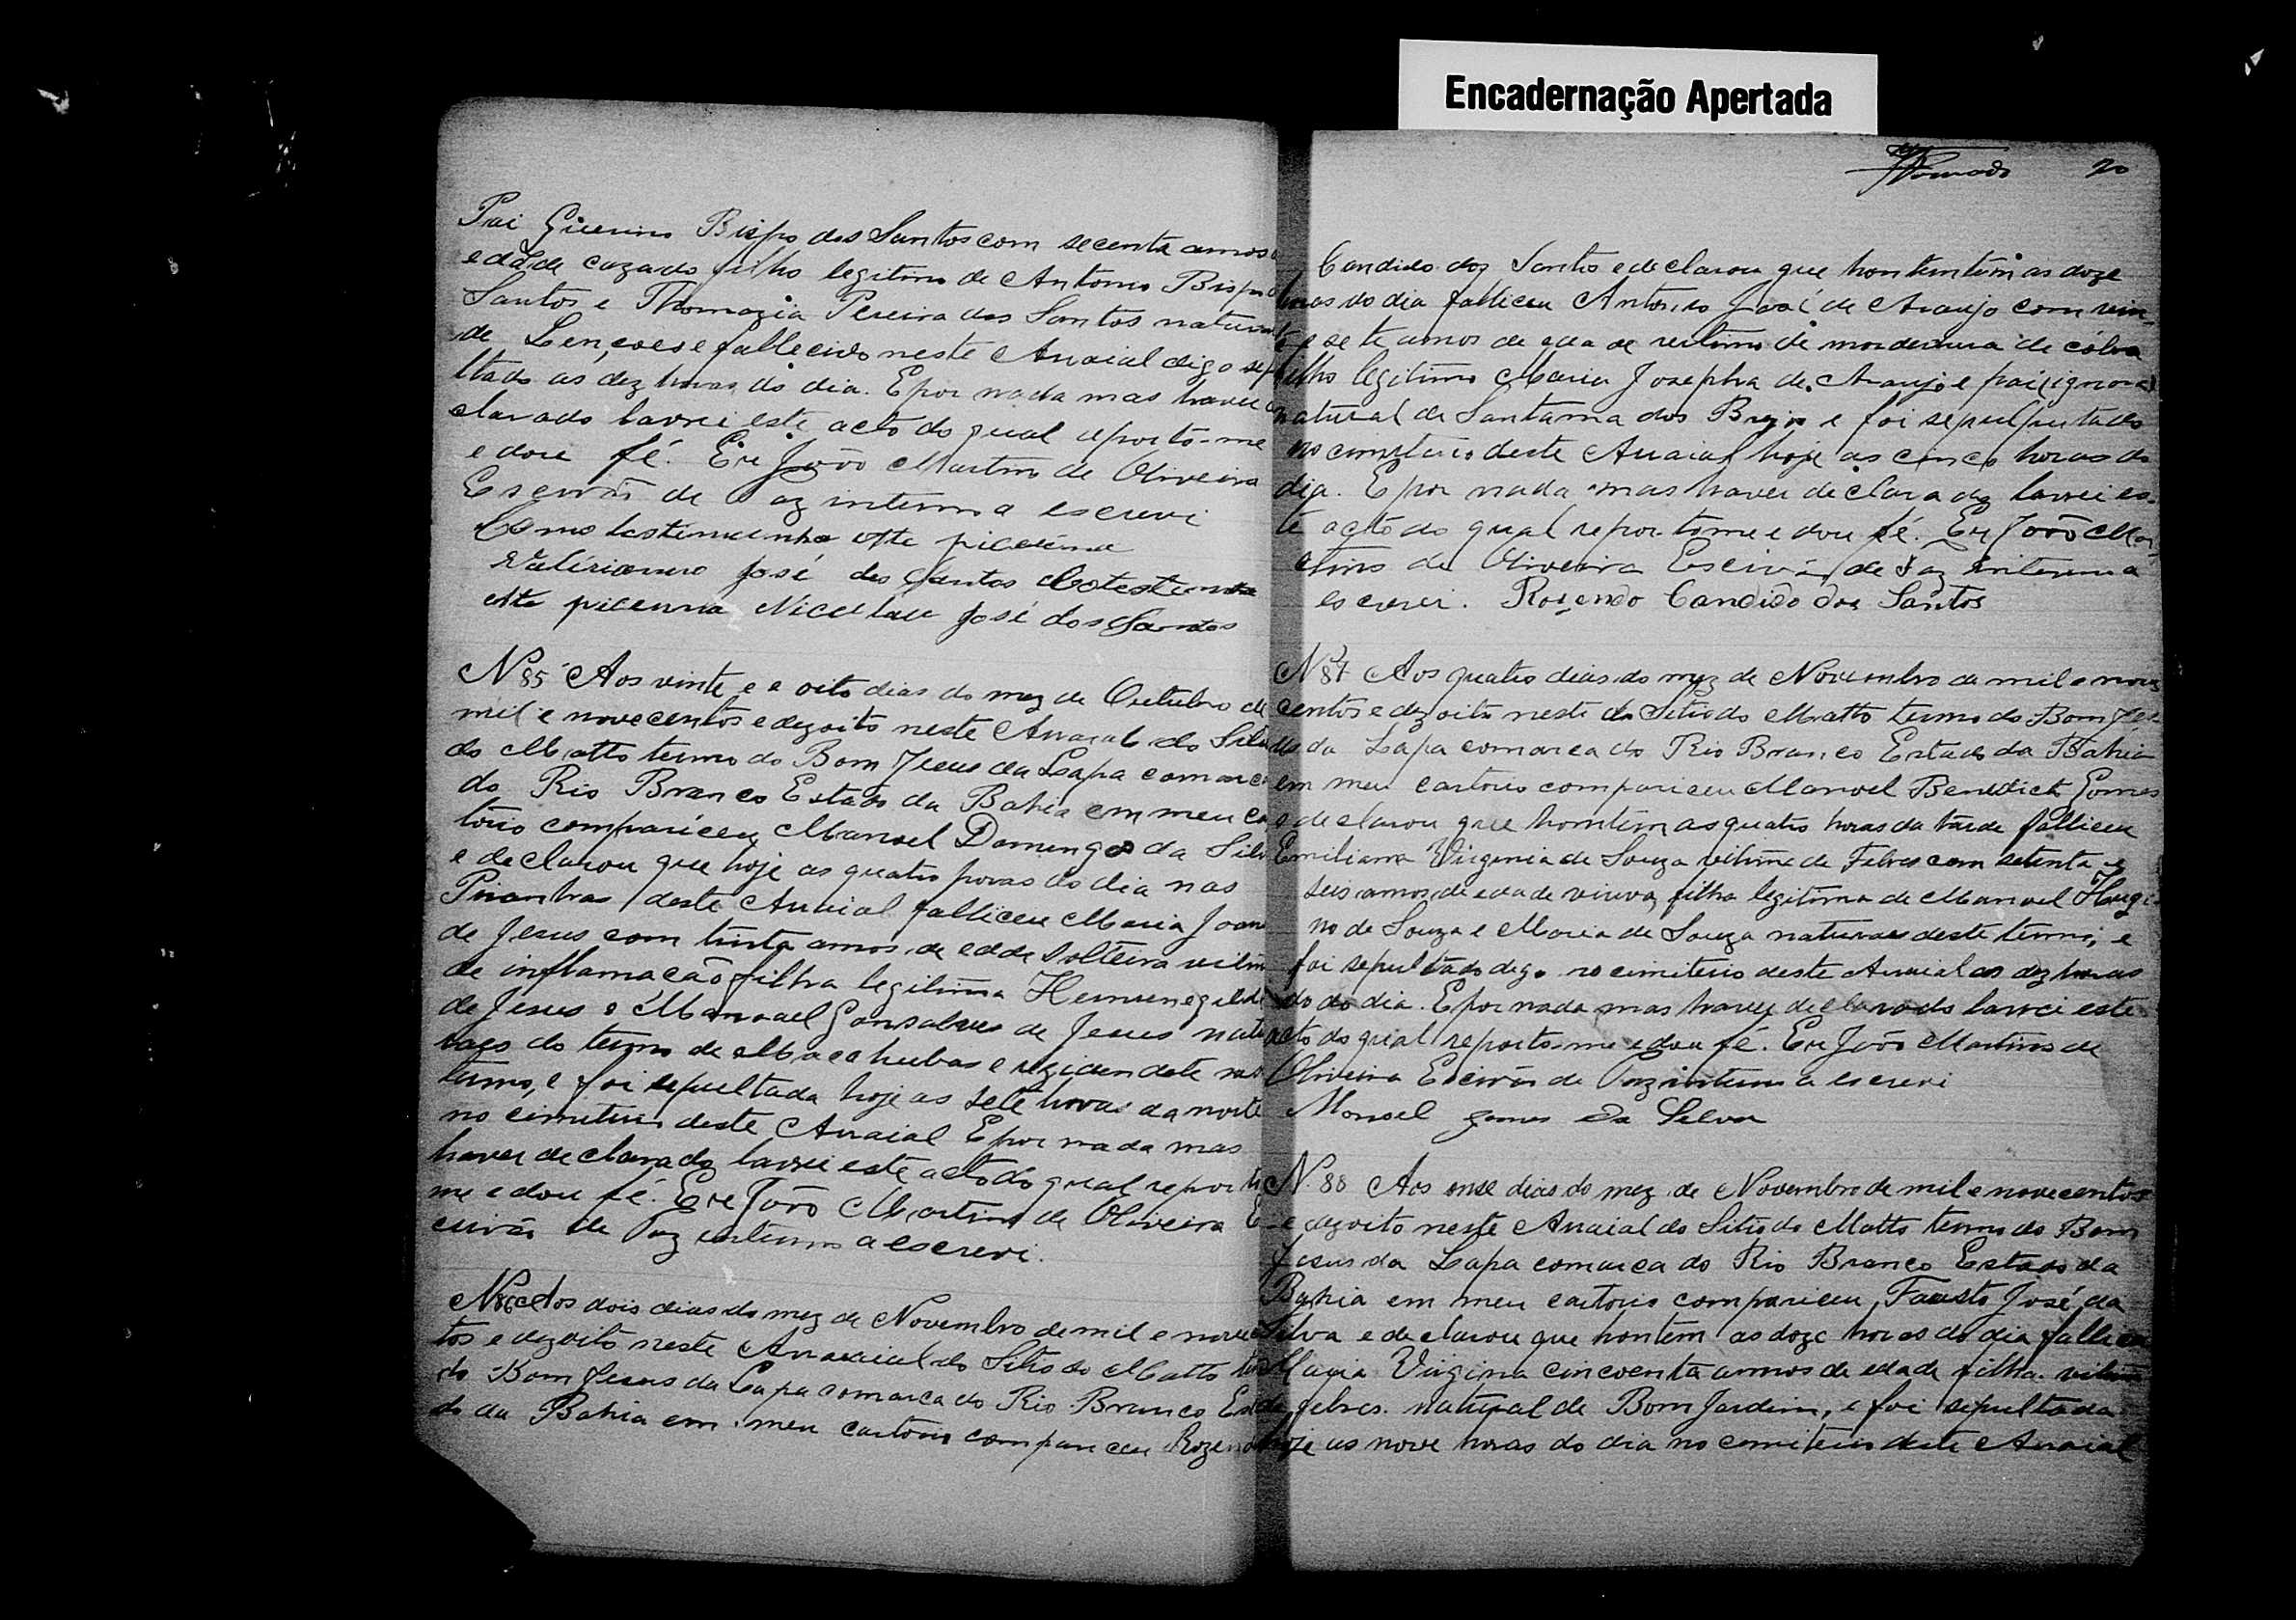 Encadernação Apertada
Pai Guerino Bispo dos Santos com secenta annos
edade cazado filho legitimo de Antonio Bispo
Santos e Thomazia Pereira dos Santos natural
de Lençoes e fallecido neste Arraial digo sepu
ltado as dez horas do dia. E por nada mas haver
clarado lavrei este acto do qual reporto-me
e dou fé. Eu João Martins de Oliveira
Escrivão de Paz interino a escrevi
Como testimunha
Valiriano José dos Santos
Nicolau José dos Santos
N 85 Aos vinte e e oito dias do mez de Outubro de
mil e novecentos e dezoito neste Arraial do Sitio
do Matto termo do Bom Jesus da Lapa comarca
do Rio Branco Estado da Bahia em meu car
torio compariceu Manoel Domingos da Silv
e declarou que hoje as quatro horas do dia nas
Piranhas deste Arraial falliceu Maria Joan
de Jesus com trinta annos de edde solteira vitim
de inflamação filha legitima Hermenegild
de Jesus e Manoael Gonsalves de Jesus natu
raes do termo de Macahubas e rezidendete nes
termo, e foi sepultada hoje as sete horas da noite
no cimiterio deste Arraial E por nada mas
haver declarado lavrei este acto do qual reporto
me e dou fé. Eu João Martins de Oliveira Es
crivão de Paz interino a escrevi.
N 86 Aos dois dias do mez de Novembro de mil e novecen
tos e dezoito neste Arraial do Sitio do Matto ter
do Bom Jesus da Lapa comarca do Rio Branco Esta
do da Bahia em meu cartorio compariceu Rozendo
20
Candido dos Santos e declarou que hontem as doze
horas do dia falliceu Antonio José de Araujo com vin
te e sete annos de edade vitimo de mordedura de cobra
filho legitimo Maria Josepha de Araujo e pai ignora
natural de Santanna dos Brejos e foi sepulputado
no cimiterio deste Arraial hoje as cinco horas do
dia. E por nada mas haver declarado lavrei es
te acto do qual reportome e dou fé. Eu João Mar
tins de Oliveira Escrivão de Paz interino a
escrevi. Rozendo Candido dos Santos
N 87 Aos quatro dias do mez de Novembro de mil e nove
centos e dezoito neste do Sitio do Matto termo do Bom Je
sus da Lapa comarca do Rio Branco Estado da Bahia
em meu cartorio compariceu Manoel Benedicto Gomes
e declarou que hontem as quatro horas da tarde falliceu
Emiliana Virginia de Souza vitima de Febres com setenta e
seis annos de edade viuva filha legitima de Manoel Hugi
no de Souza e Maria de Souza naturaes deste termo, e
foi sepultado digo no cimiterio deste Arraial as dez horas
do do dia. E por nada mas haver declarado lavrei este
acto do qual reporto-me e dou fé. Eu João Martins de
Oliveira Escrivão de Paz interino a escrevi
Manoel Gomes da Silva
N. 88 Aos onse dias do mez de Novembro de mil e novecentos
e dezoito neste Arraial do Sitio do Matto termo do Bom
Jesus da Lapa comarca do Rio Branco Estado da
Bahia em meu cartorio compariceu Fausto José da
Silva e declarou que hontem as doze horas do dia falliceu
Maria Virgina cincoenta annos de edade filha vitima
de febres. natural de Bom Jardim, e foi sepultada
hoje as nove horas do dia no cimiterio deste Arraial